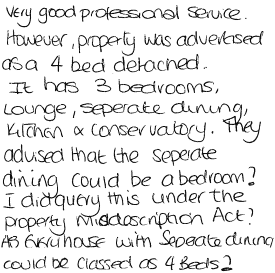 Very good professional service.
However, property was advertised
as a 4 bed detached.
It has 3 bedrooms,
Lounge, seperate dining,
Kitchen & conservatory. They
advised that the seperate
dining could be a bedroom?
I did query this under the
property Misdescription Act?
As Every house with Seperate dining
could be classed as 4 Beds?